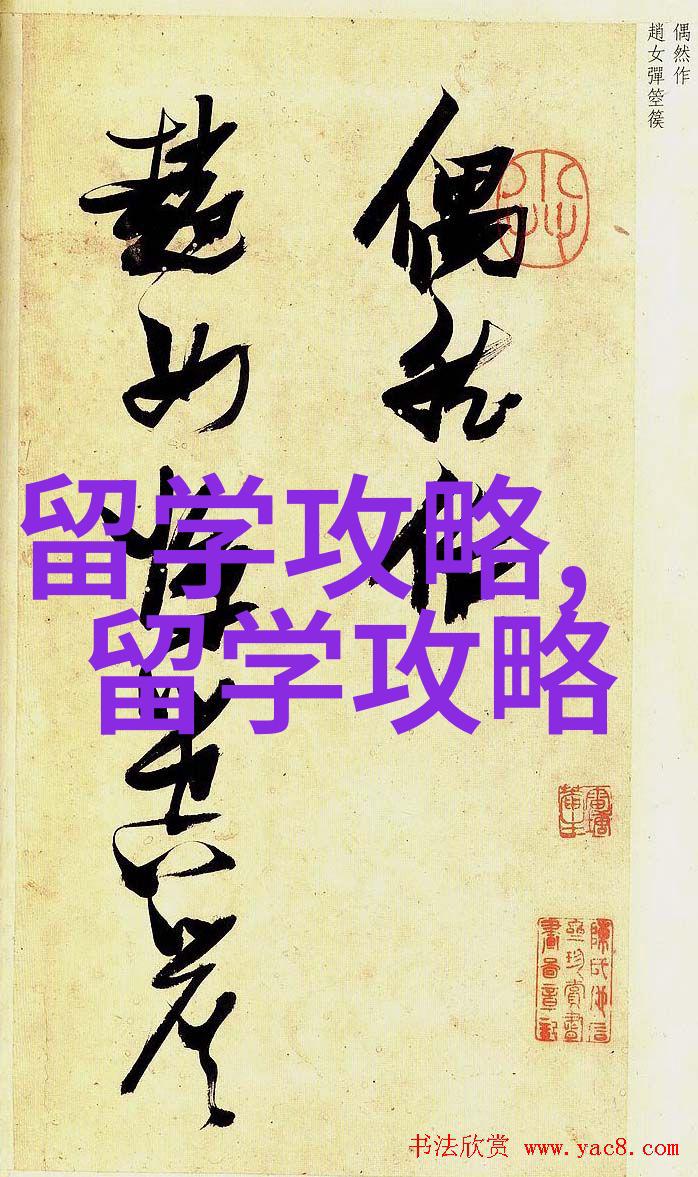 偶然作
趙女彈箜篌
偶然作
趙女彈箜篌
留学攻略,
留学攻略
书法欣赏 www.yac8.com